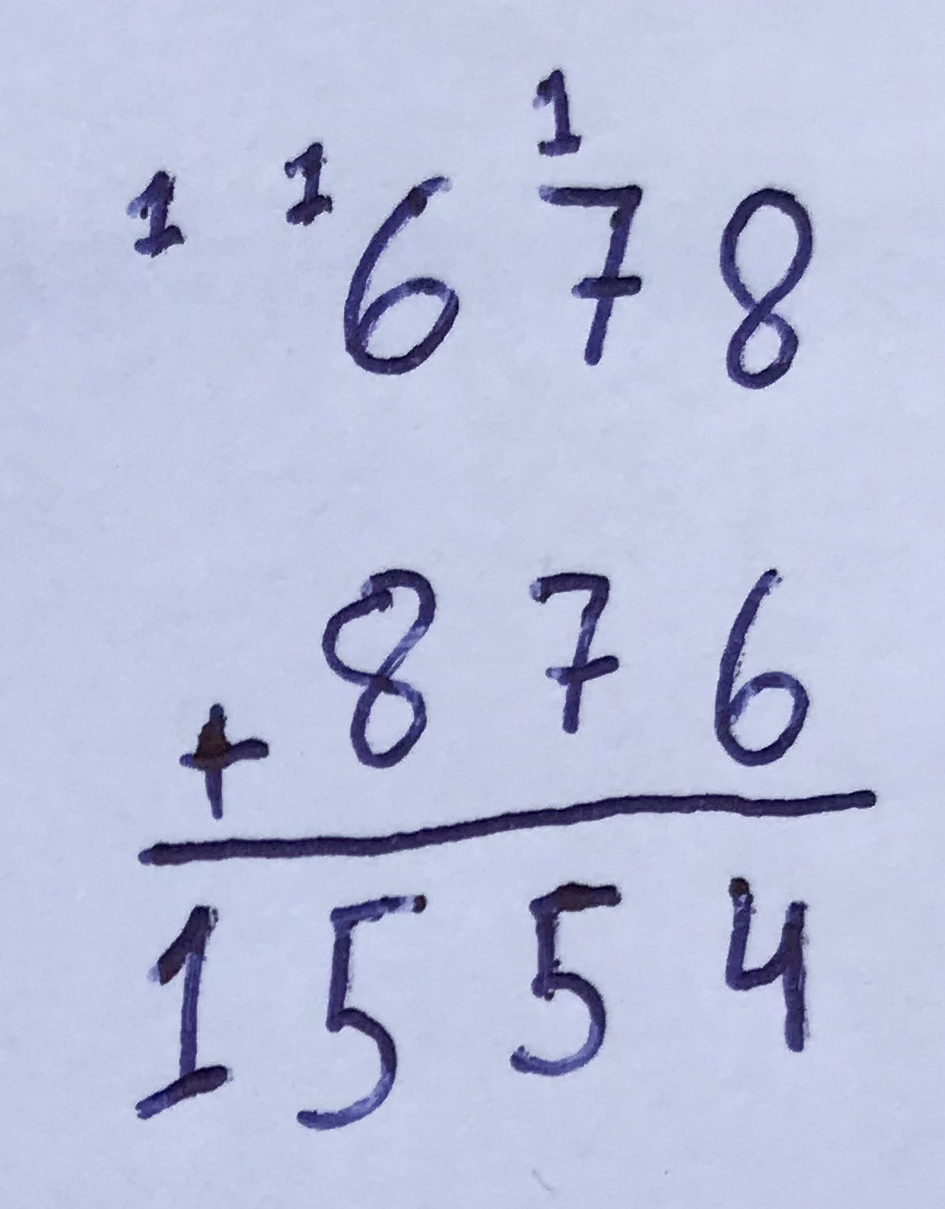 1 1 1
678
+ 876
1554